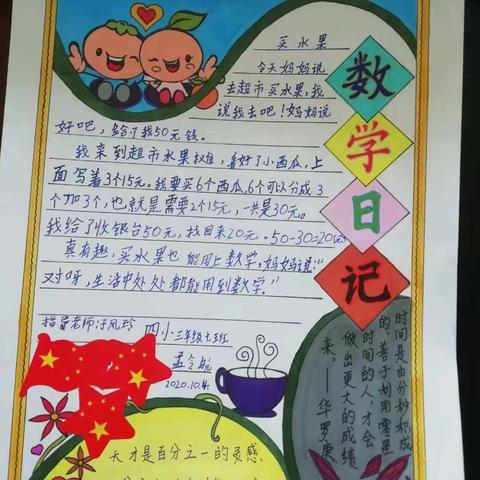 买水果
今天妈妈说
去超市买水果,我
说我去吧!妈妈说
好吧,给了我50元钱。
我来到超市水果摊,看好了小西瓜,上
面写着3个15元。我要买6个西瓜,6个可以分成3
个加3个,也就是需要2个15元,一共是30元。
我给了收银台50元,找回来20元。50-30=20(元)
真有趣,买水果也能用上数学。妈妈说:“
对呀,生活中处处都能用到数学。”
数学日记
指导老师:于凤玲
四小三年级七班
2020.10.4
时间是由分秒积成
的、善于利用零星
时间的人,才会
做出更大的成绩
来。——华罗庚
天才是百分之一的灵感、